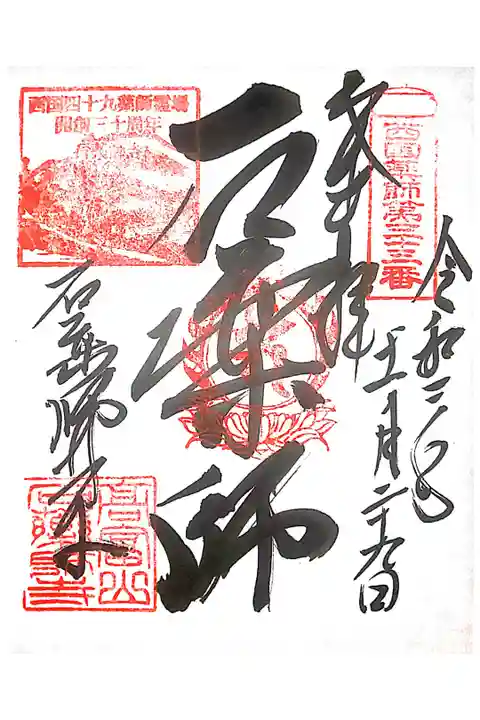 西國薬師第三十三番
奉拝
令和二年
十一月二十九日
石薬師
西国四十九薬師霊場
開創三十周年
石薬師寺
高富山
石薬師寺